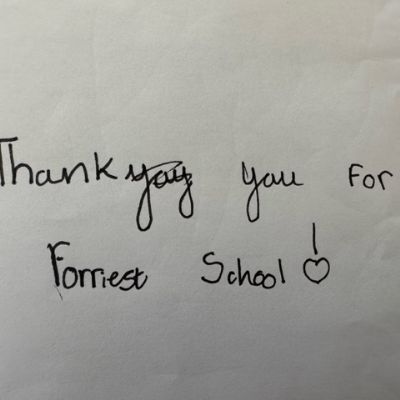 Thank you for
Forriest School!